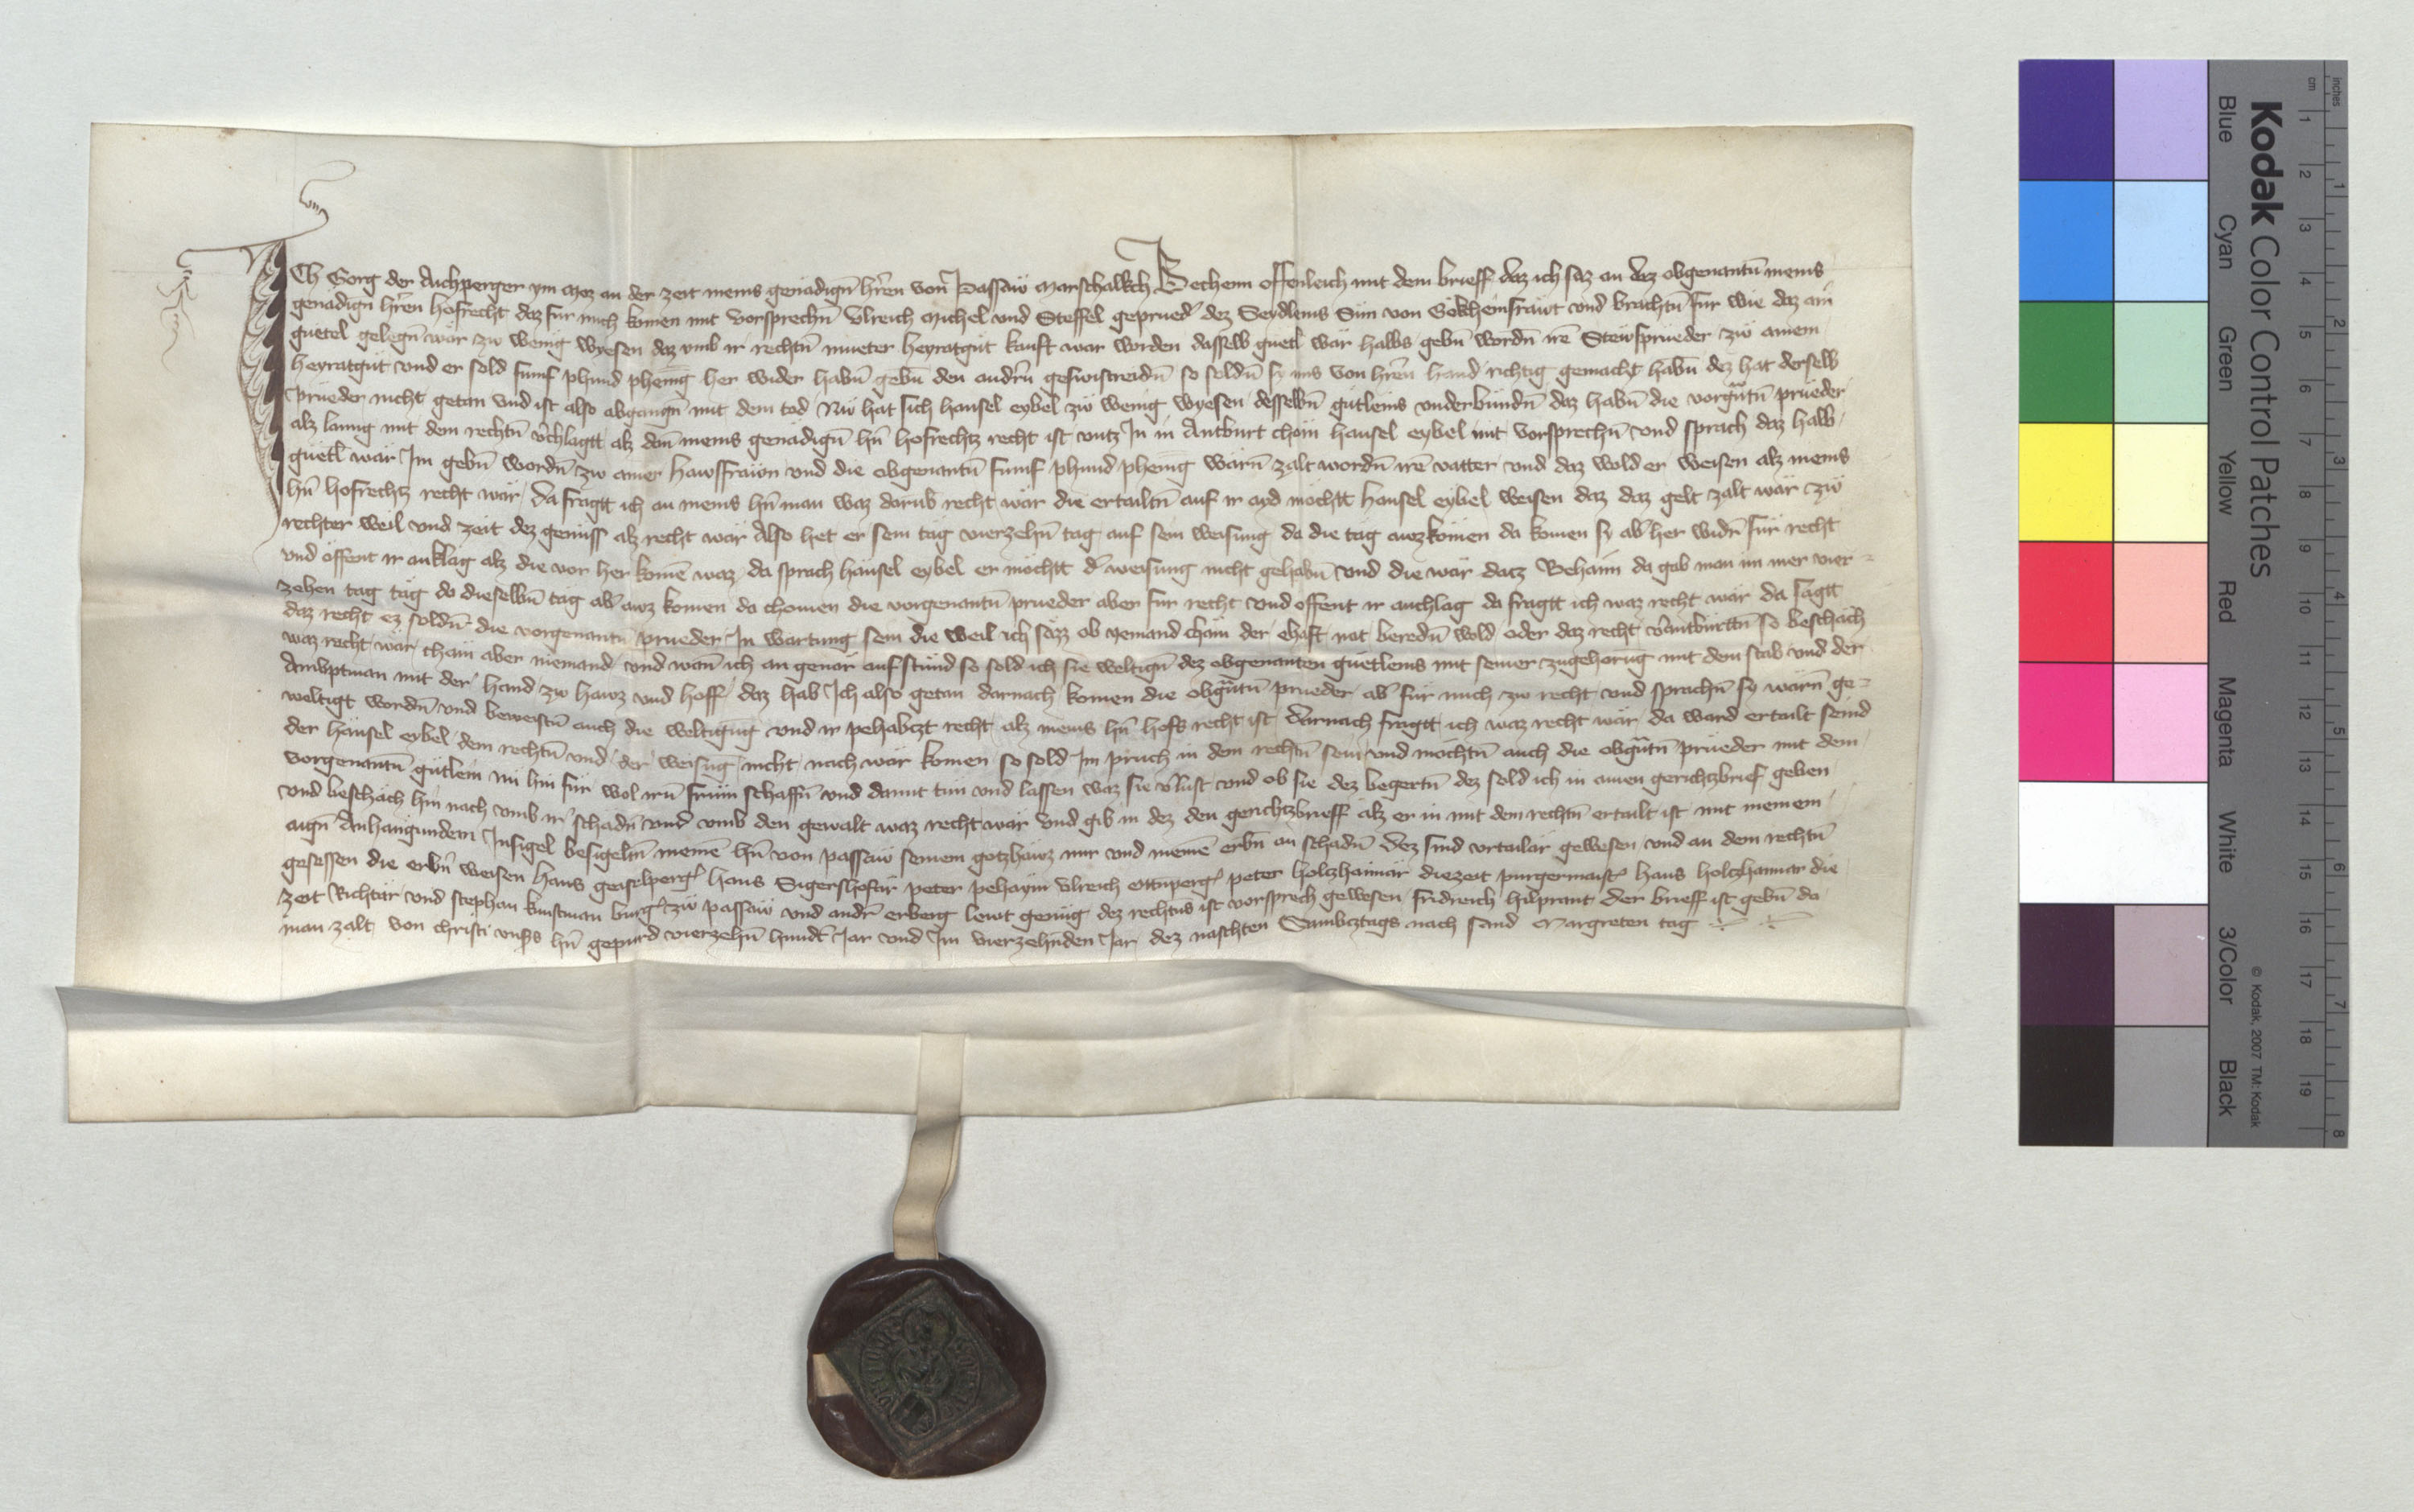 Ich Gorg der Aichperger ym Moz an der zeit meins genadign̄ hr̄en von Passaw marschalkch Bechenn offenleich mit dem brieff daz ich saz an daz obgenantn̄ meins
genadign̄ hr̄en hofrecht daz fur mich komen mit vorsprechn̄ Ulreich Michel und Steffel geprued̛ dez Seydleins Sün von
und brachtn̄ für wie daz ain
guetel gelegn̄ wär zw wenig wyesen daz umb ir rechtn̄ mueter heyratgut kauft war worden dasselb guetl wär halbs gebn̄ wordn̄ irē Stewfprueder zw ainem
heyratgüt und er sold fumf phund pheniḡ her wider habn̄ gebn̄ den andr̄n geswistreidn̄ so soldn̄ sy ins von hr̄en hand richtig gemacht habn̄ dez hat derselb
prüeder nicht getan und ist also abgangn̄ mit dem tod Nw hat sich hansel eybel zw wenig wyesen desselbn̄ gütleins underbundn̄ daz habn̄ die vorgn̄tn̄ prüeder
alz lanng mit dem rechtn̄ v̄chlagtt alz dan̄ meins genädign̄ hn̄ hofrechtz recht ist untz In in Antburt chöm hansel eybel mit vorsprechn̄ und sprach daz halb
guetl wär Im gebn̄ wordn̄ zw ainer hawsfrawn und die obgenantn̄ fumf phund phenig warn̄ zalt wordn̄ irē vatter und daz wold er weisen alz meins
hn̄ hofrechtz recht wär da fragtt ich an meins hn̄ man waz darub recht wär die ertailtn̄ auf ir ayd möchtt hansel eybel weisen daz daz gelt zalt wär zw
rechter weil und zeit dez geniess alz recht wär Also het er sein täg vierzehn̄ tag auf sein weisung da die täg auzkömen da komen sy ab̛ her widr̄ für recht
und öffent ir anklag alz die vor her komē waz da sprach hänsel eybel er möchtt d̛ weisung nicht gehabn̄ und die wär datz Behaim da gab man im mer vier=
zehen tag täg do dieselbn̄ tag ab̛ auz komen da chomen die vorgenantn̄ prueder aber fur recht und offent ir anchlag da fragtt ich waz recht wär da sagtt
daz recht ez soldn̄ die vorgenantn̄ prueder In wartung sein die weil ich säzz ob yemand chäm der ehaft not beredn̄ wold oder daz recht v̄antburttn̄ so beschäch
waz recht wär chäm aber niemand und wan̄ ich an genär aufstund so sold ich sie weltign̄ dez obgenanten guetleins mit seiner zugehorūg mit dem stab und der
Ambtman mit der hand zw hawz und hoff daz hab Ich also getan darnach komen die obgn̄tn̄ prueder ab̛ für mich zw recht und sprachn̄ sy wärn̄ ge=
weltigt wordn̄ und beweistn̄ auch die weltigūg und ir pehabtzt recht alz meins hn̄ hofs recht ist Darnach fragtt ich waz recht wär da ward ertailt seind
der hänsel eybel dem rechtn̄ und der weisūg nicht nach wär komen so sold Im pruch in dem rechtn̄ sein und möchtn̄ auch die obgn̄tn̄ prueder mit dem
vorgenantn̄ gütlein nü hin für wol irn̄ frum schaffn̄ und damit tün und lassen waz sie v̄lust und ob sie dez begertn̄ dez sold ich in ainen gerichtzbrief geben
und beschäch hin nach umb ir schadn̄ und umb den gewalt waz recht wär Und gib in dez den gerichtzbrieff alz er in mit dem rechtn̄ ertailt ist mit meinem
aign̄ Anhangundem Insigel besigeltn̄ meinē hn̄ von passaw seinem gotzhawz mir und meinē erbn̄ an schadn̄ Dez sind urtailär gewesen und an dem rechtn̄
gesessen die erbn̄ weisen hans geiselperg̛ hans Sigershofär peter pehaym Ulreich peter holtzhaimär diezeit purgermaist̛ hans holtzhaimar die
zeit Richtär und stephan kunstman burg̛ zw passaw und andr̛ erberg lewt genüg dez rechtns ist vorsprech gewesen fridreich hilprant Der brieff ist gebn̄ do
man zalt von christi unss̄s hn̄ gepurd vierzehn̄ hundt̛ Jar und Im vierzehnden Jar dez naschten Sambtztags nach sand Margreten tag
Kodak Color Control Patches
Blue Cyan Green Yellow Red Magenta White 3/Color Black
© Kodak, 2007 TM: Kodak
cm 1 2 3 4 5 6 7 8 9 10 11 12 13 14 15 16 17 18 19
inches 1 2 3 4 5 6 7 8